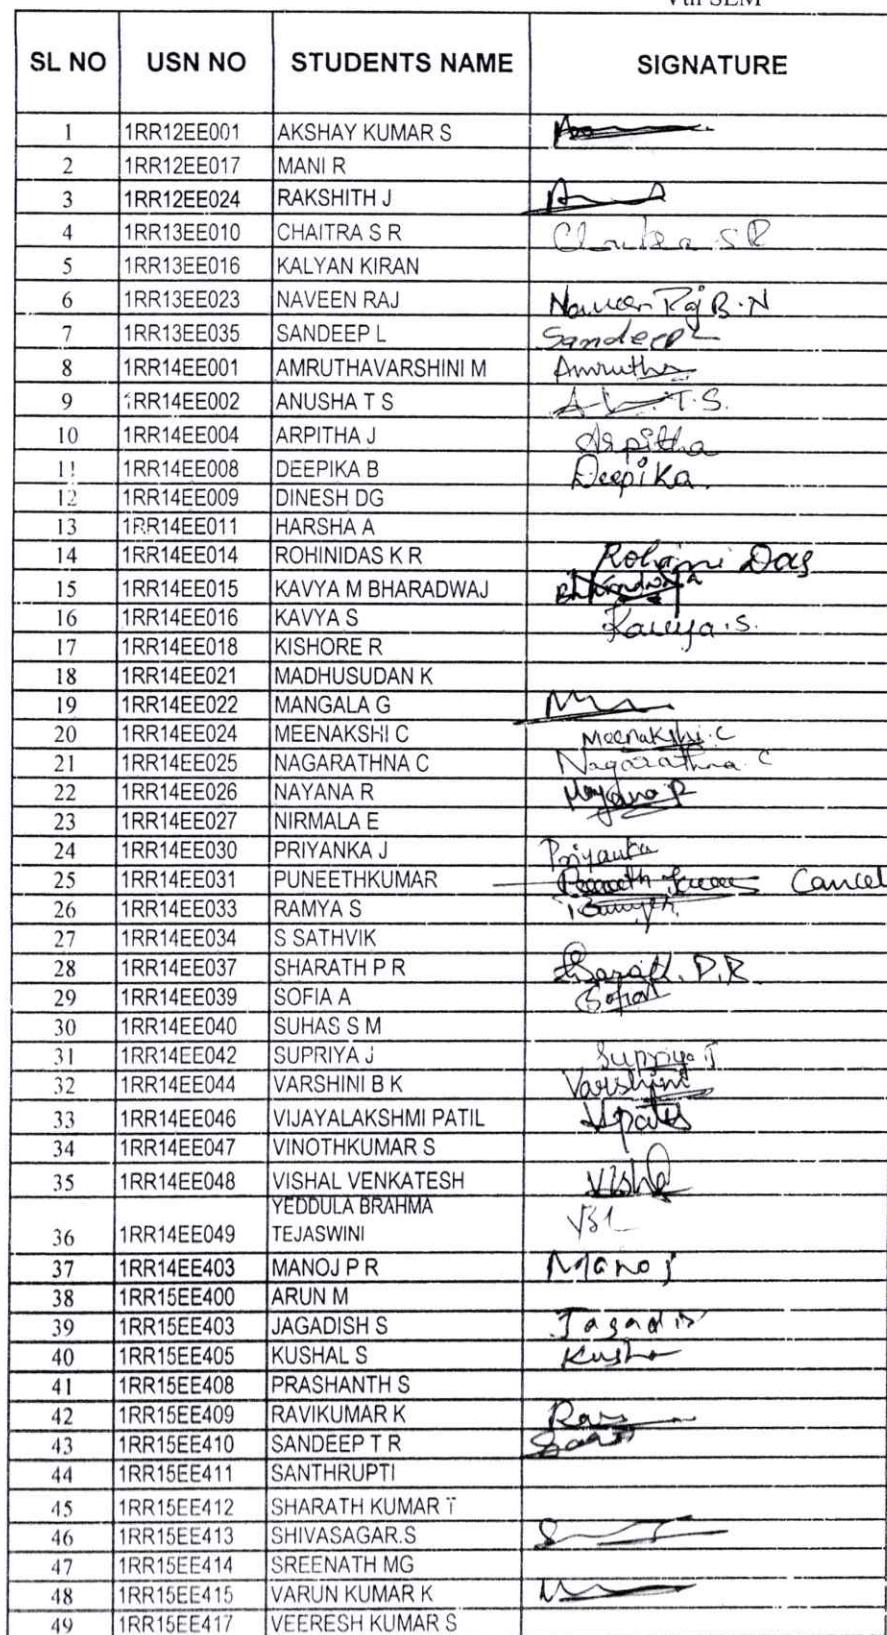 Vth SEM
SL NO USN NO STUDENTS NAME SIGNATURE
1 1RR12EE001 AKSHAY KUMAR S
2 1RR12EE017 MANI R
3 1RR12EE024 RAKSHITH J
4 1RR13EE010 CHAITRA S R Chaitra S R
5 1RR13EE016 KALYAN KIRAN
6 1RR13EE023 NAVEEN RAJ Naveen Raj B.N
7 1RR13EE035 SANDEEP L Sandeep L
8 1RR14EE001 AMRUTHAVARSHINI M Amrutha
9 1RR14EE002 ANUSHA T S T.S.
10 1RR14EE004 ARPITHA J Arpitha
11 1RR14EE008 DEEPIKA B Deepika.
12 1RR14EE009 DINESH DG
13 1RR14EE011 HARSHA A
14 1RR14EE014 ROHINIDAS K R Rohini Das
15 1RR14EE015 KAVYA M BHARADWAJ
16 1RR14EE016 KAVYA S Kavya.S.
17 1RR14EE018 KISHORE R
18 1RR14EE021 MADHUSUDAN K
19 1RR14EE022 MANGALA G
20 1RR14EE024 MEENAKSHI C Meenakshi.C
21 1RR14EE025 NAGARATHNA C Nagarathna C
22 1RR14EE026 NAYANA R Nayana R
23 1RR14EE027 NIRMALA E
24 1RR14EE030 PRIYANKA J Priyanka
25 1RR14EE031 PUNEETHKUMAR Puneeth Kumar Cancel
26 1RR14EE033 RAMYA S
27 1RR14EE034 S SATHVIK
28 1RR14EE037 SHARATH P R Sharath.P.R
29 1RR14EE039 SOFIA A Sofia
30 1RR14EE040 SUHAS S M
31 1RR14EE042 SUPRIYA J Supriya J
32 1RR14EE044 VARSHINI B K Varshini
33 1RR14EE046 VIJAYALAKSHMI PATIL Vpatil
34 1RR14EE047 VINOTHKUMAR S
35 1RR14EE048 VISHAL VENKATESH Vishal
YEDDULA BRAHMA
36 1RR14EE049 TEJASWINI
37 1RR14EE403 MANOJ P R Manoj
38 1RR15EE400 ARUN M
39 1RR15EE403 JAGADISH S Jagadis
40 1RR15EE405 KUSHAL S Kusha
41 1RR15EE408 PRASHANTH S
42 1RR15EE409 RAVIKUMAR K Ravi
43 1RR15EE410 SANDEEP T R
44 1RR15EE411 SANTHRUPTI
45 1RR15EE412 SHARATH KUMAR T
46 1RR15EE413 SHIVASAGAR.S
47 1RR15EE414 SREENATH MG
48 1RR15EE415 VARUN KUMAR K
49 1RR15EE417 VEERESH KUMAR S